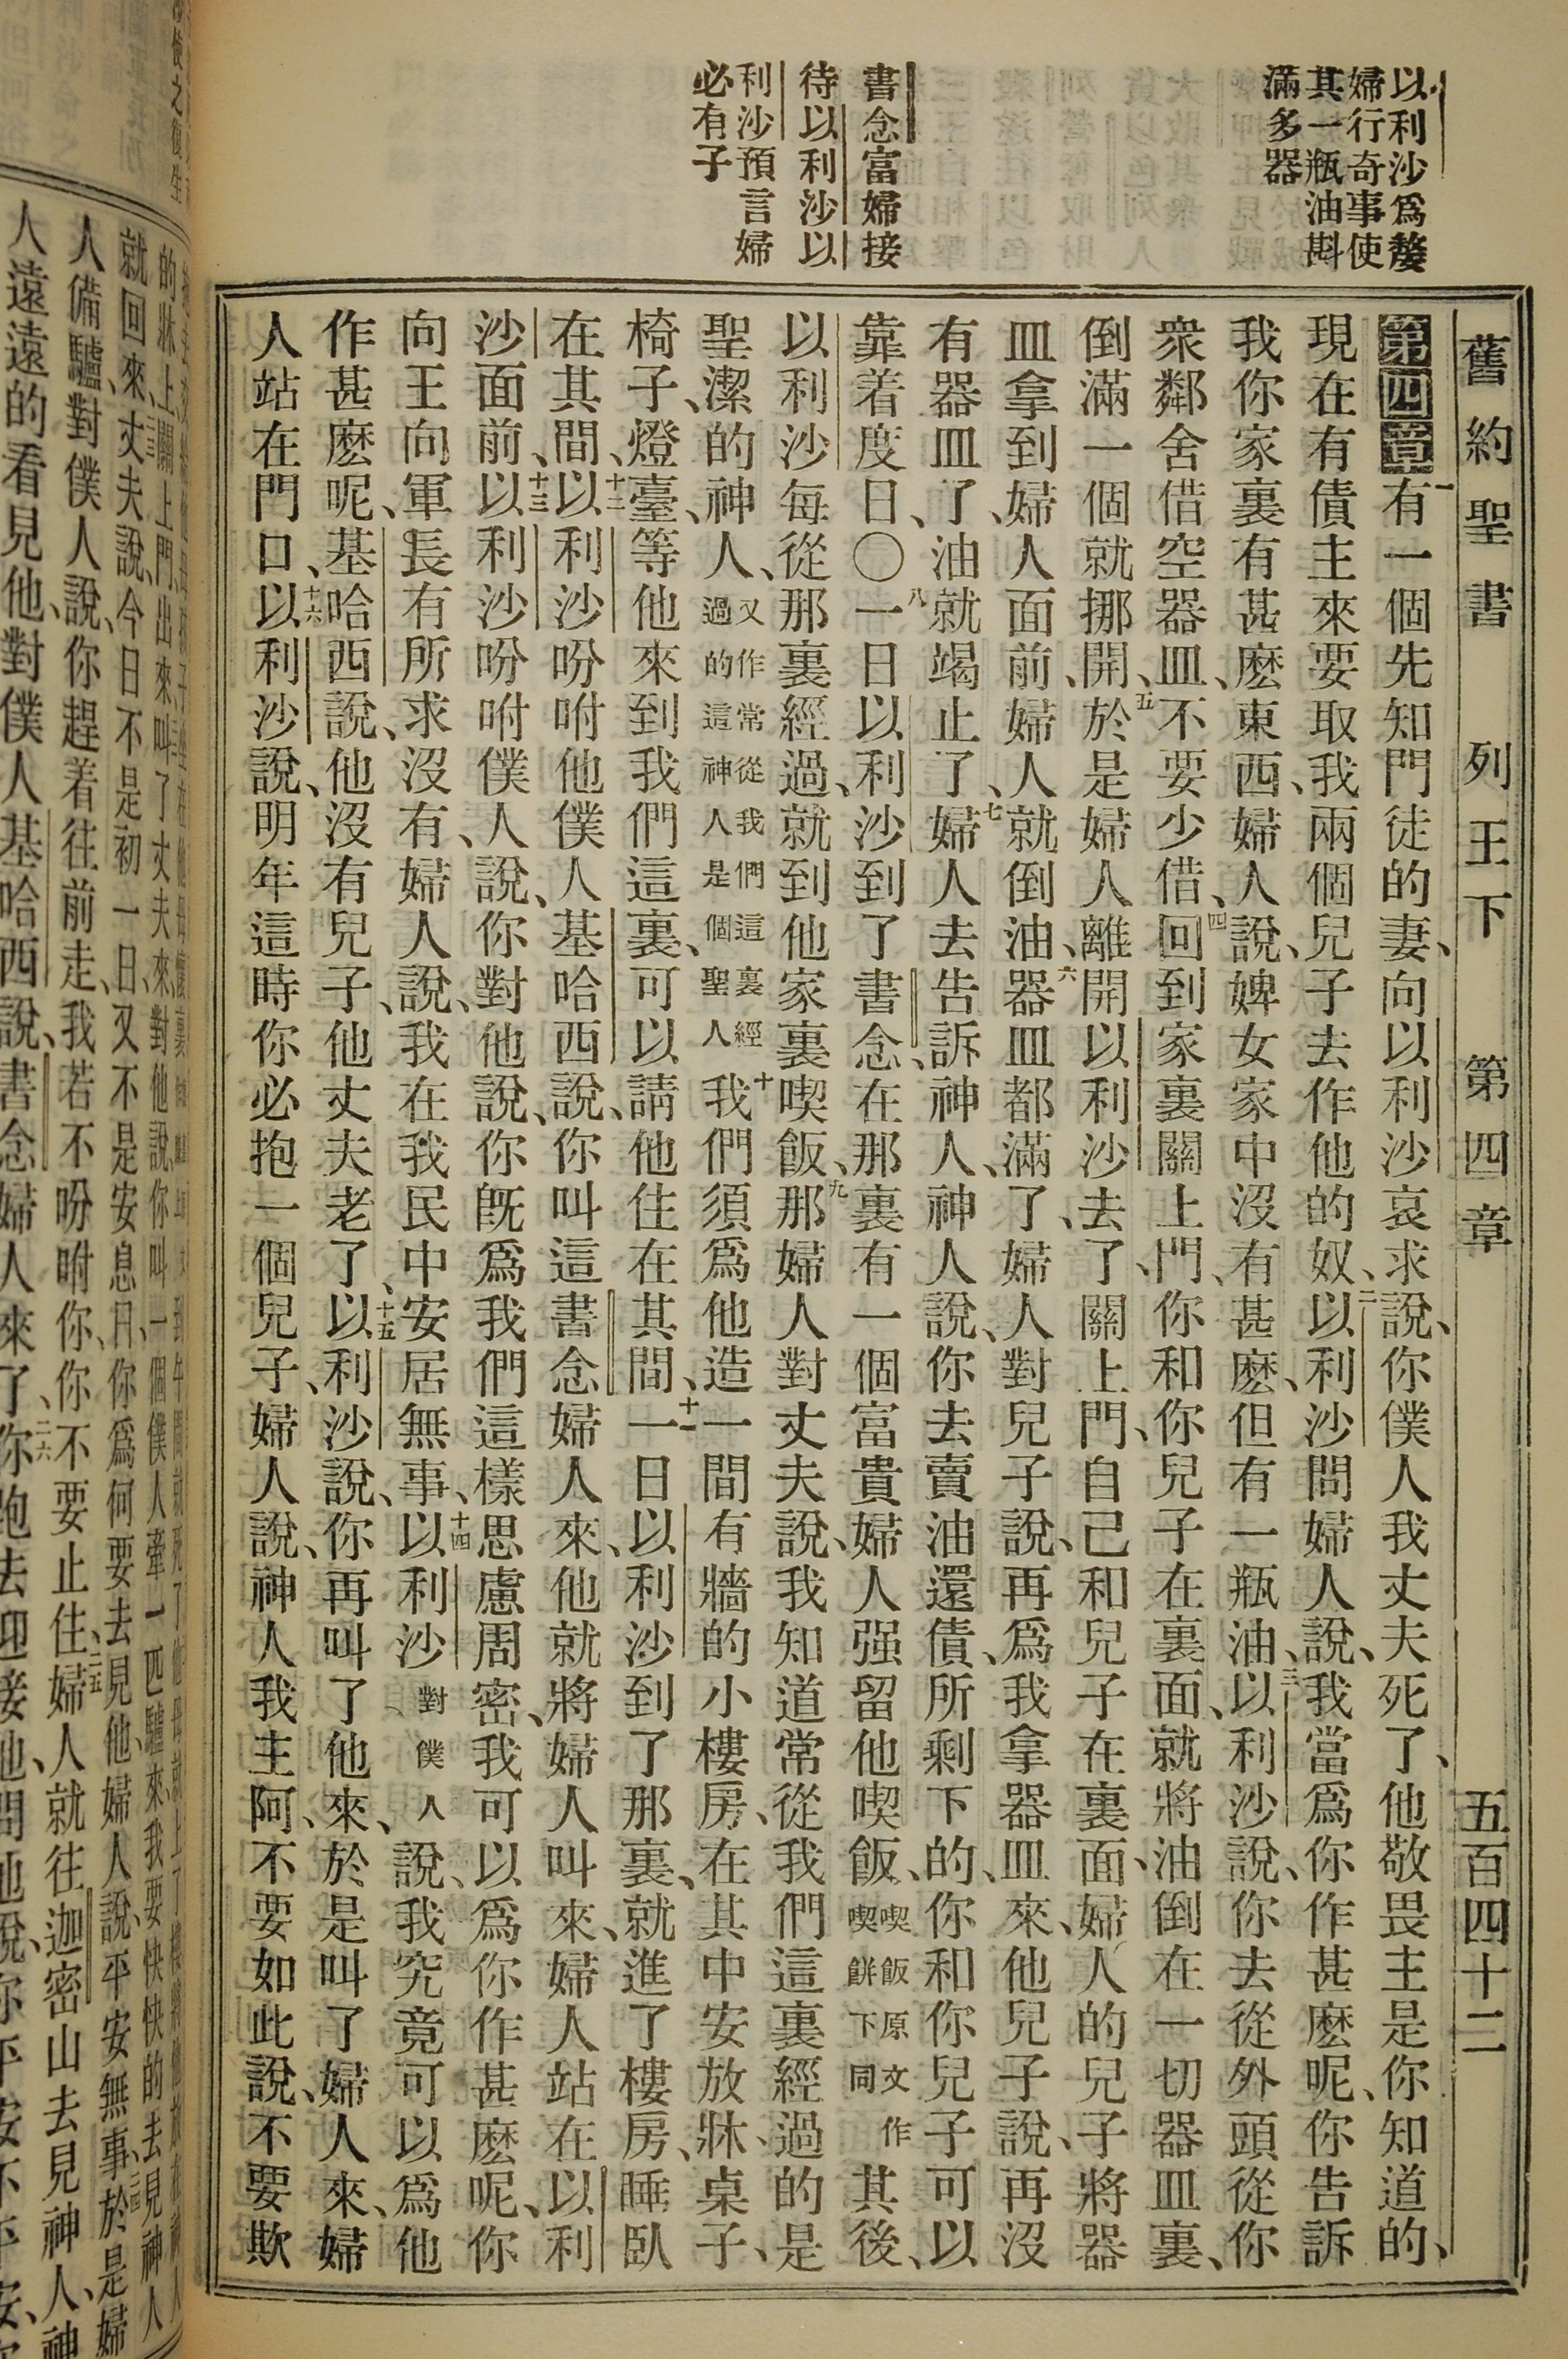 以利沙爲嫠
婦行奇事使
其一瓶油斟
滿多器
書念富婦接
待以利沙以
利沙預言婦
必有子
舊約聖書 列王下 第四章 五百四十二
第四章 一有一個先知門徒的妻、向以利沙哀求說、你僕人我丈夫死了、他敬畏主是你知道的、
現在有債主來要取我兩個兒子去作他的奴、二以利沙問婦人說、我當爲你作甚麽呢、你告訴
我你家裏有甚麽東西、婦人說、婢女家中沒有甚麽、但有一瓶油、三以利沙說、你去從外頭從你
衆鄰舍借空器皿、不要少借、四回到家裏關上門、你和你兒子在裏面、就將油倒在一切器皿裏、
倒滿一個就挪開、五於是婦人離開以利沙去了、關上門、自己和兒子在裏面、婦人的兒子將器
皿拿到婦人面前、婦人就倒油、六器皿都滿了、婦人對兒子說、再爲我拿器皿來、他兒子說、再沒
有器皿了、油就竭止了、七婦人去告訴神人、神人說、你去賣油還債、所剩下的、你和你兒子可以
靠着度日、〇八一日以利沙到了書念、在那裏有一個富貴婦人强留他喫飯、喫飯原文作喫餅下同其後、
以利沙每從那裏經過、就到他家裏喫飯、九那婦人對丈夫說、我知道常從我們這裏經過的是
聖潔的神人、又作常從我們這裏經過的這神人是個聖人十我們須爲他造一間有牆的小樓房、在其中安放牀、桌子、
椅子、燈臺、等他來到我們這裏、可以請他住在其間、十一一日以利沙到了那裏、就進了樓房、睡臥
在其間、十二以利沙吩咐他僕人基哈西說、你叫這書念婦人來、他就將婦人叫來、婦人站在以利
沙面前、十三以利沙吩咐僕人說、你對他說、你旣爲我們這樣思慮周密、我可以爲你作甚麽呢、你
向王向軍長有所求沒有、婦人說、我在我民中安居無事、十四以利沙對僕人說、我究竟可以爲他
作甚麽呢、基哈西說、他沒有兒子、他丈夫老了、十五以利沙說、你再叫了他來、於是叫了婦人來、婦
人站在門口、十六以利沙說、明年這時你必抱一個兒子、婦人說、神人我主阿、不要如此說、不要欺
的牀上、關上門、出來叫了丈夫來、對他說、你叫一個僕人牽一匹驢來、我要快快的去見神人
就回來、丈夫說、今日不是初一日、又不是安息日、你爲何要去見他、婦人說、平安無事、於是婦
人備驢、對僕人說、你趕着往前走、我若不吩咐你、你不要止住、二五婦人就往迦密山去見神人、神
人遠遠的看見他、對僕人基哈西說、書念婦人來了、二六你跑去迎接他、問他說、你平安不平安、